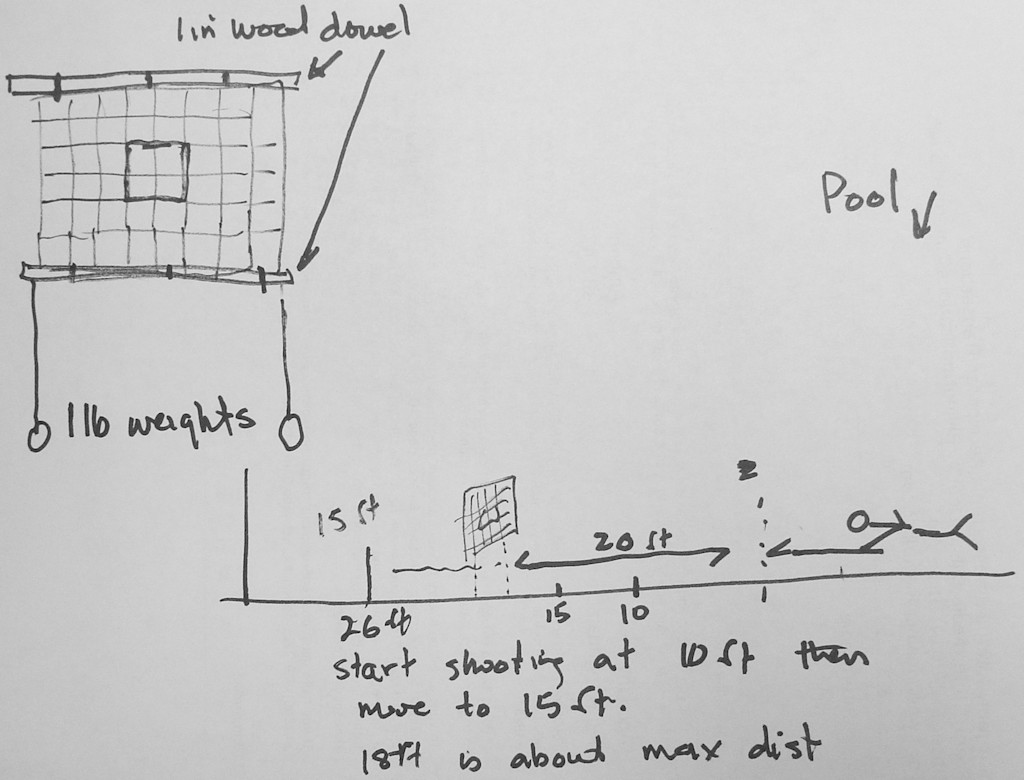 1in wood dowel
Pool
1 lb weights
15 ft
20 ft
2
26 ft
15
10
1
start shooting at 10 ft then
move to 15 ft.
18ft is about max dist